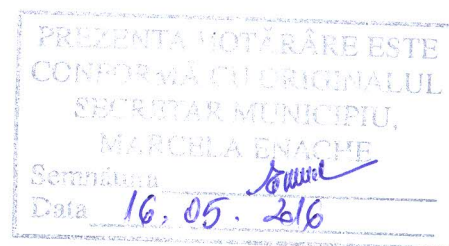 PREZENTA HOTĂRÂRE ESTE
CONFORMĂ CU ORIGINALUL
SECRETAR MUNICIPIU,
MARCELA ENACHE
Semnătura
Data 16. 05. 2016